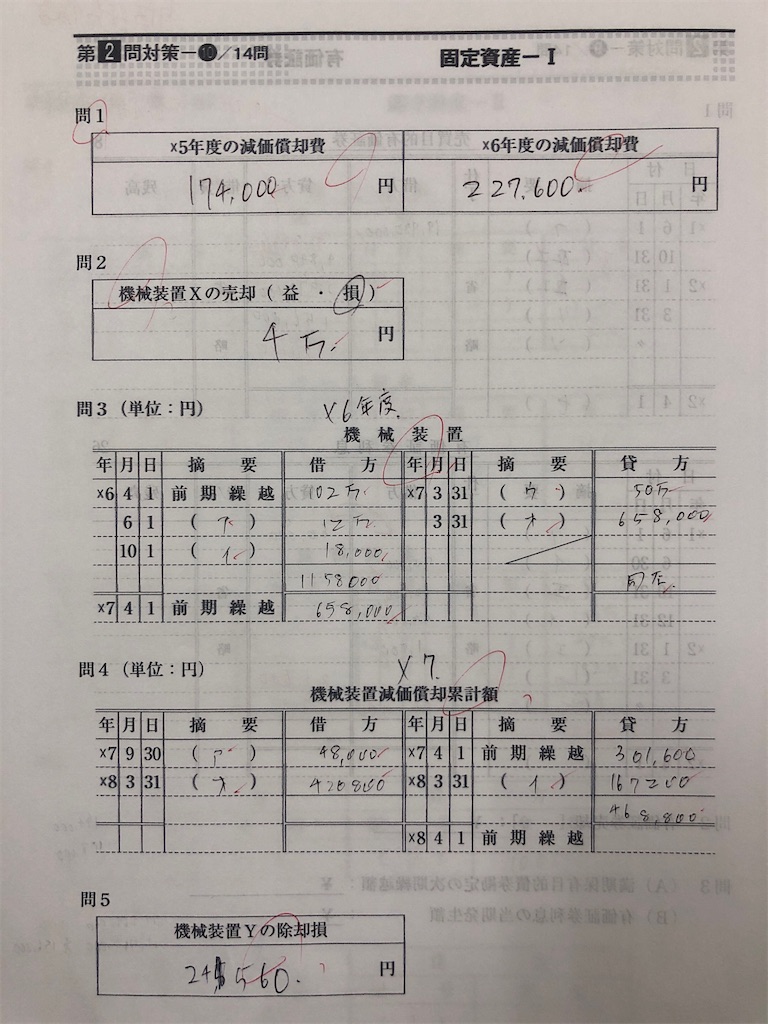 第2問対策－⓾／14問 固定資産－Ⅰ
問1
×5年度の減価償却費 ×6年度の減価償却費
174,000 円 227,600. 円
問2
機械装置Xの売却（益 ・ 損）
4万. 円
問3（単位：円） ×6年度.
機 械 装 置
年 月 日 摘 要 借 方 年 月 日 摘 要 貸 方
×6 4 1 前 期 繰 越 102万 ×7 3 31 （ ウ ） 50万
6 1 （ ア ） 12万 3 31 （ オ ） 658,000
10 1 （ イ ） 18,000
1158000 同左.
×7 4 1 前 期 繰 越 658,000
問4（単位：円） ×7.
機械装置減価償却累計額
年 月 日 摘 要 借 方 年 月 日 摘 要 貸 方
×7 9 30 （ ア ） 48,000 ×7 4 1 前 期 繰 越 301,600
×8 3 31 （ オ ） 420800 ×8 3 31 （ イ ） 167200
468,800
×8 4 1 前 期 繰 越
問5
機械装置Yの除却損
円